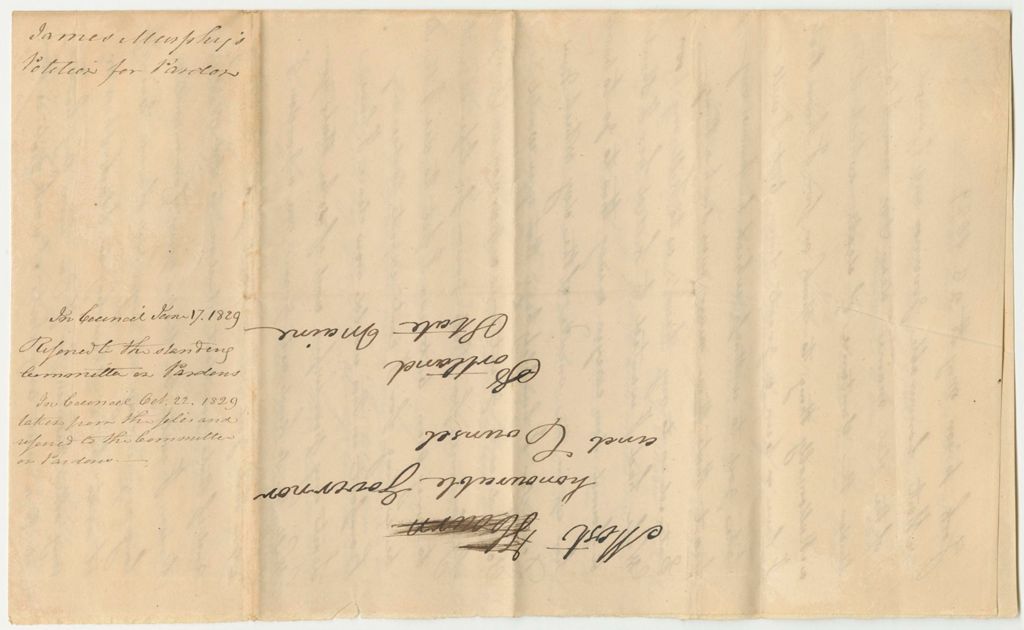 James Murphy's
Petition for Pardon
In Council June 17. 1829
Referred to the standing
Committee on Pardons
In Council Oct. 22. 1829
taken from the files and
referred to the Committee
on Pardons
Most
honourable Governor
and Counsel
Portland
State Maine